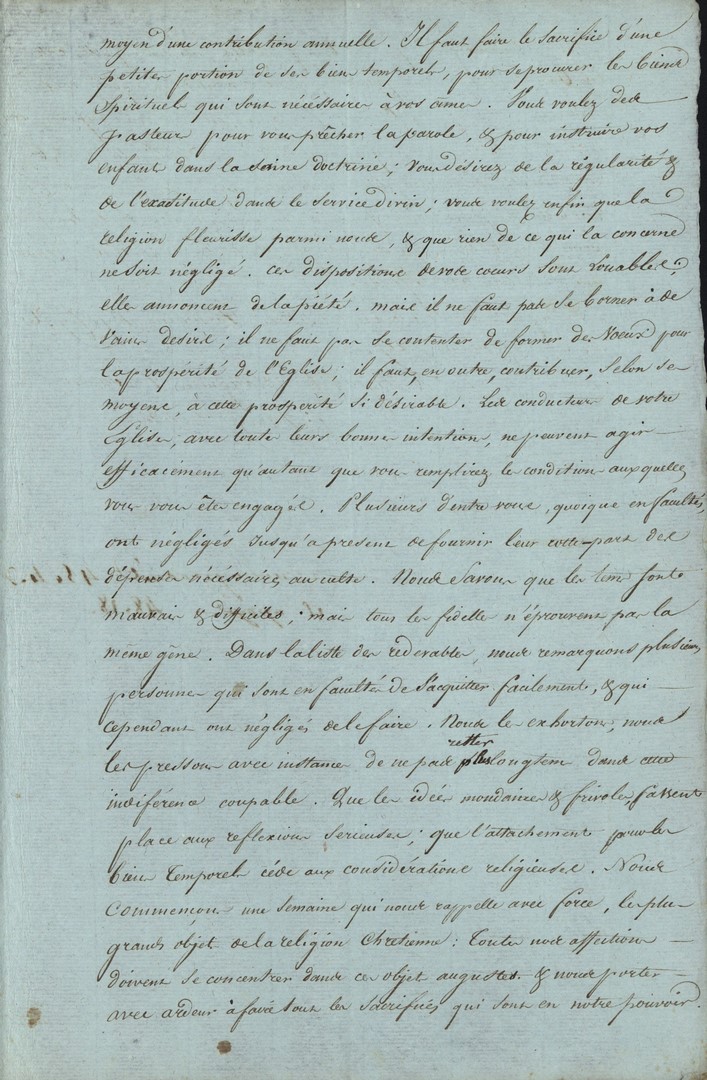 moyen d'une contribution annuelle. Il faut faire le sacrifice d'une
petites portion de ses bien temporels, pour se procurer les biens
Spirituels qui sont nécessaires à vos âmes. Vous voulez des
pasteurs pour vous prêcher la parole, & pour instruire vos
enfants dans la saine doctrine; Vous désirez de la régularité &
de l'exactitude dans le service divin; vous voulez enfin que la
religion fleurisse parmi nous, & que rien de ce qui la concerne
ne soit négligé. ces dispositions de vos coeurs sont Louables,
elles annoncent de la piété. mais il ne faut pas se borner à de
Vains desirs; il ne faut pas se contenter de former des Voeux pour
la prospérité de l'Eglise; il faut, en outre, contribuer, selon ses
moyens, à cette prospérité si désirable. Les conducteurs de votre
Eglises, avec toutes leurs bonnes intentions, ne peuvent agir
efficacement qu'autant que vous remplirez les conditions auxquelles
vous vous êtes engagés. Plusieurs d'entre vous, quoique en facultés,
ont négligés Jusqu'a present de fournir leur cotte-part des
dépenses nécessaires au culte. Nous savons que les tems sont
mauvais & difficiles; mais tous les fidelles n'éprouvent pas la
même gêne. Dans la liste des redevables, nous remarquons plusieurs
personnes qui sont en facultés de s'acquitter facilement, & qui
cependant ont négligés de le faire. Nous les exhortons, nous
les pressons avec instances de ne pas rester plus longtems dans cette
indiférence coupable. Que les idées mondaines & frivoles fassent
place aux reflexions serieuses; que l'attachement pour les
biens Temporels cède aux considérations religieuses. Nous
Commencons une semaine qui nous rappelle avec force, les plus
grands objets de la religion Chretienne: Toutes nos affections
doivent se concentrer dans ces objets augustes. & nous porter
avec ardeur à faire tous les sacrifices qui sont en notre pouvoir.